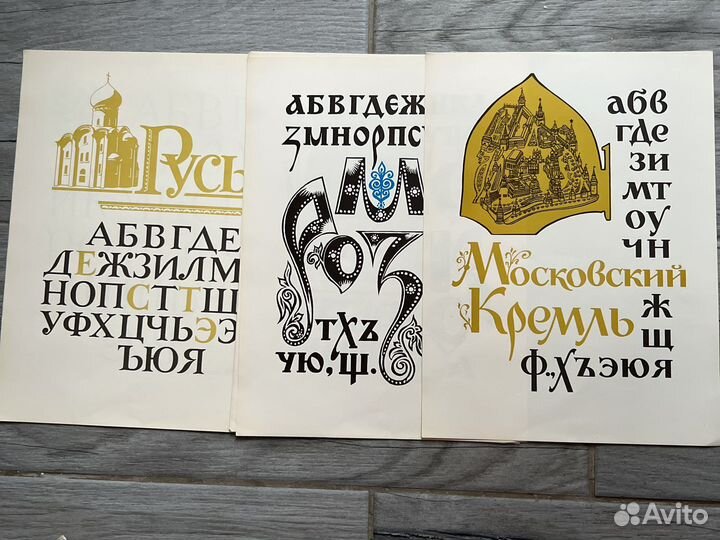 Русь
АБВГДЕ
ДЕЖЗИЛМ
НОПСТТЩ
УФХЦЧЬЭЭ
ЪЮЯ
АБВГДЕЖ
ЗМНОРПС
М
РОЗ
ТХЪ
ЧУЮ, Щ.
абв
где
зи
мт
оу
чн
Московский
Кремль
ж
щ
Ф., ХЪЭЮЯ
Avito